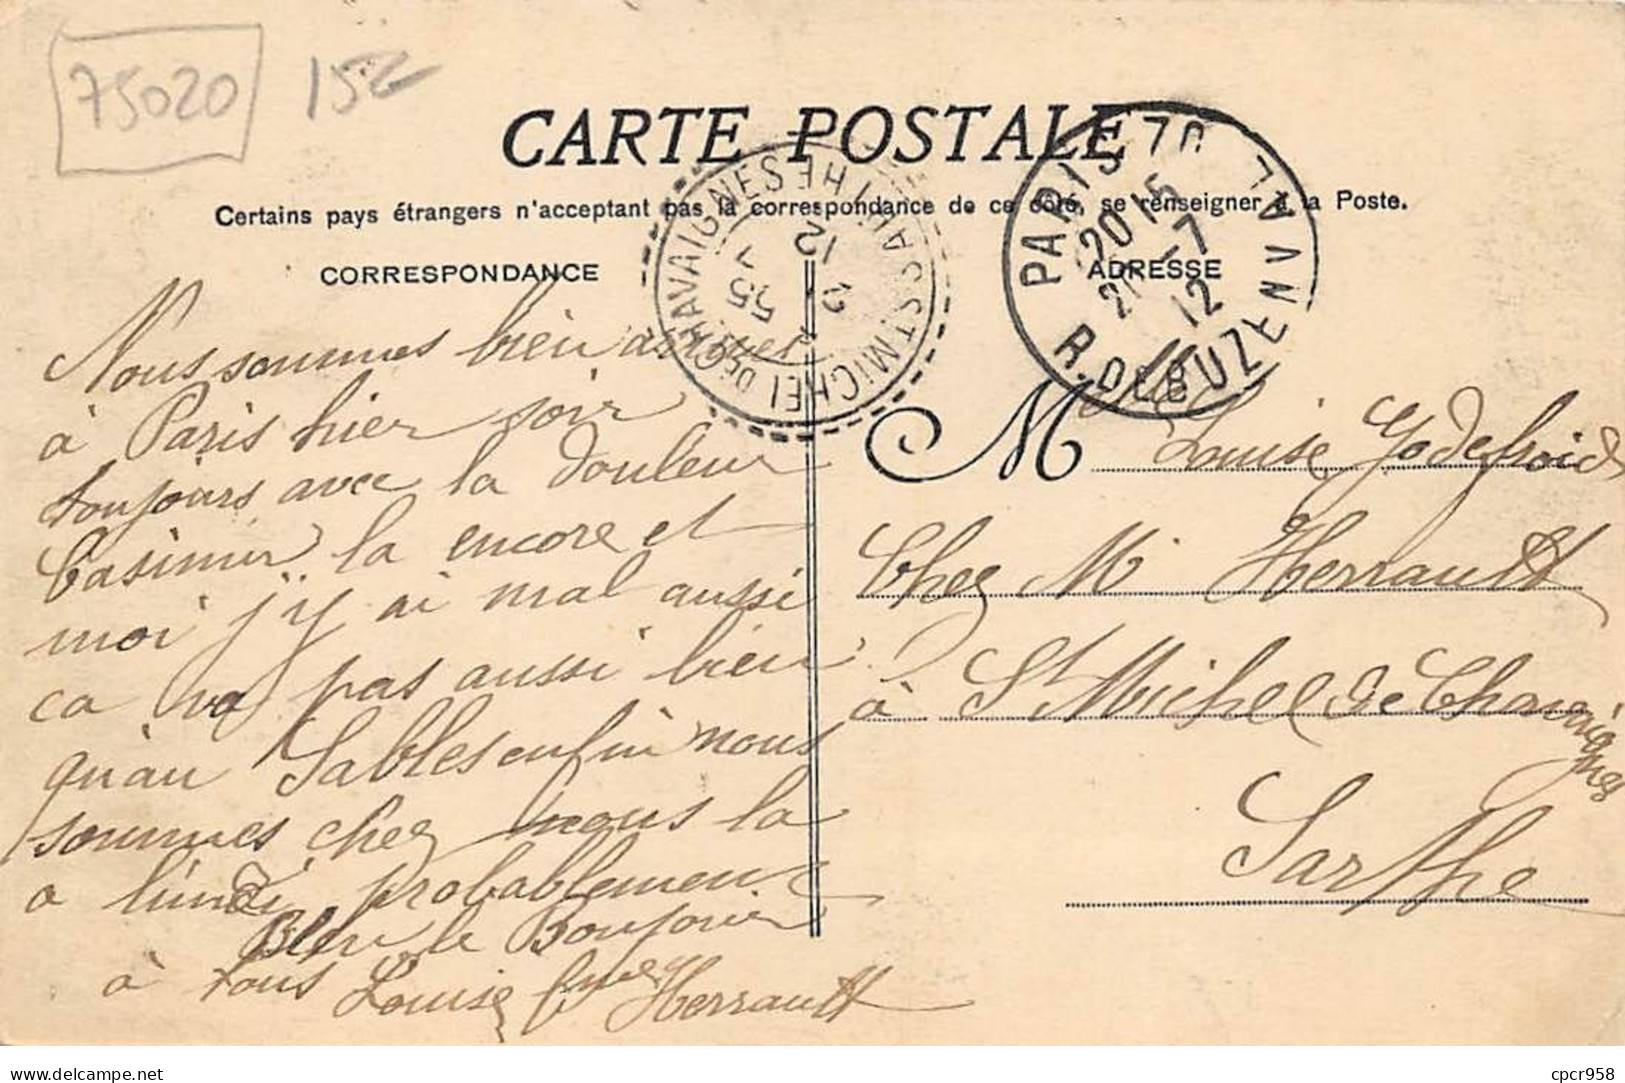 75020
15€
CARTE POSTALE
Certains pays étrangers n'acceptent pas la correspondance de ce côté, se renseigner à la Poste.
CORRESPONDANCE
ADRESSE
ST MICHEL DE CHAVAIGNES SARTHE
PARIS
20 15
7
12
Nous sommes bien arrivés
à Paris hier soir
toujours avec la douleur
Casimir la encore et
moi j'y ai mal aussi
ca va pas aussi bien
qu'au Sables enfin nous
sommes chez nous la
a lundi probablement
Bien le Bonjour
à tous Louise Herrault
M Louise Godefroid
Chez Mr Herrault
à St Michel de Chavaignes
Sarthe
delcampe.net
cpcr958